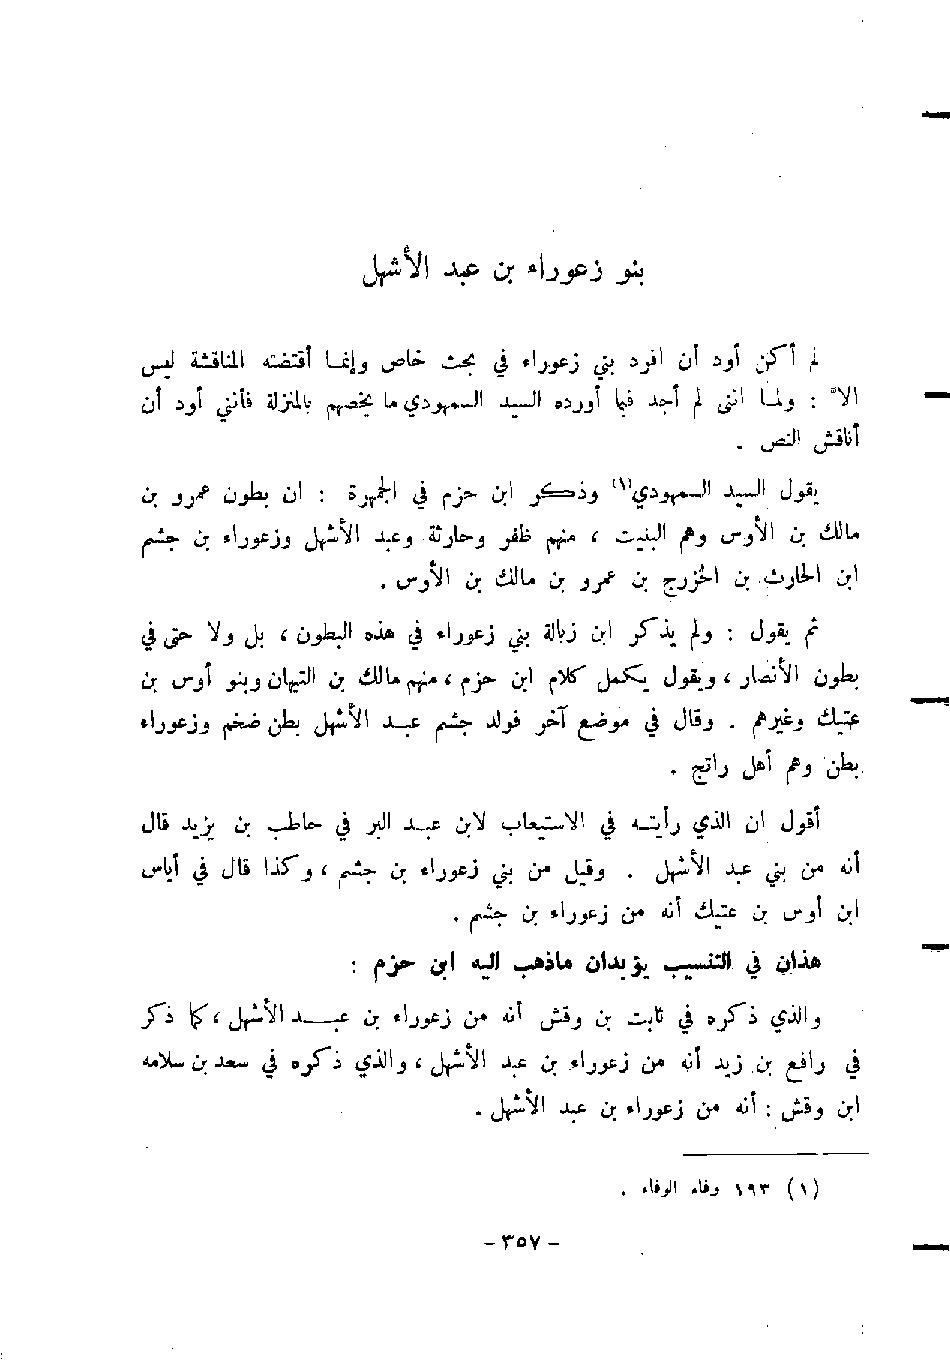 بنو زعوراء بن عبد الأشهل
لم أكن أود أن افرد بني زعوراء في بحث خاص وإنما أقتضته المناقشة ليس
الا : ولما اننى لم أجد فيما أورده السيد السمهودي ما يخصهم بالمنزلة فأنني أود أن
أناقش النص .
يقول السيد السمهودي(١) وذكر ابن حزم في الجمهرة : ان بطون عمرو بن
مالك بن الأوس وهم البنيت ، منهم ظفر وحارثة وعبد الأشهل وزعوراء بن جشم
ابن الحارث بن الخزرج بن عمرو بن مالك بن الأوس .
ثم يقول : ولم يذكر ابن زبالة بني زعوراء في هذه البطون ، بل ولا حتى في
بطون الأنصار ، ويقول يكمل كلام ابن حزم ، منهم مالك بن التيهان وبنو أوس بن
عتيك وغيرهم . وقال في موضع آخر فولد جشم عبد الأشهل بطن ضخم وزعوراء
بطن وهم أهل راتج .
أقول ان الذي رأيته في الاستيعاب لابن عبد البر في حاطب بن يزيد قال
أنه من بني عبد الأشهل . وقيل من بني زعوراء بن جشم ، وكذا قال في أياس
ابن أوس بن عتيك أنه من زعوراء بن جشم .
هذان في التنسيب يؤيدان ماذهب اليه ابن حزم :
والذي ذكره في ثابت بن وقش أنه من زعوراء بن عبد الأشهل ، كما ذكر
في رافع بن زيد أنه من زعوراء بن عبد الأشهل ، والذي ذكره في سعد بن سلامه
ابن وقش : أنه من زعوراء بن عبد الأشهل .
(١) ١٩٣ وفاء الوفاء .
- ٣٥٧ -